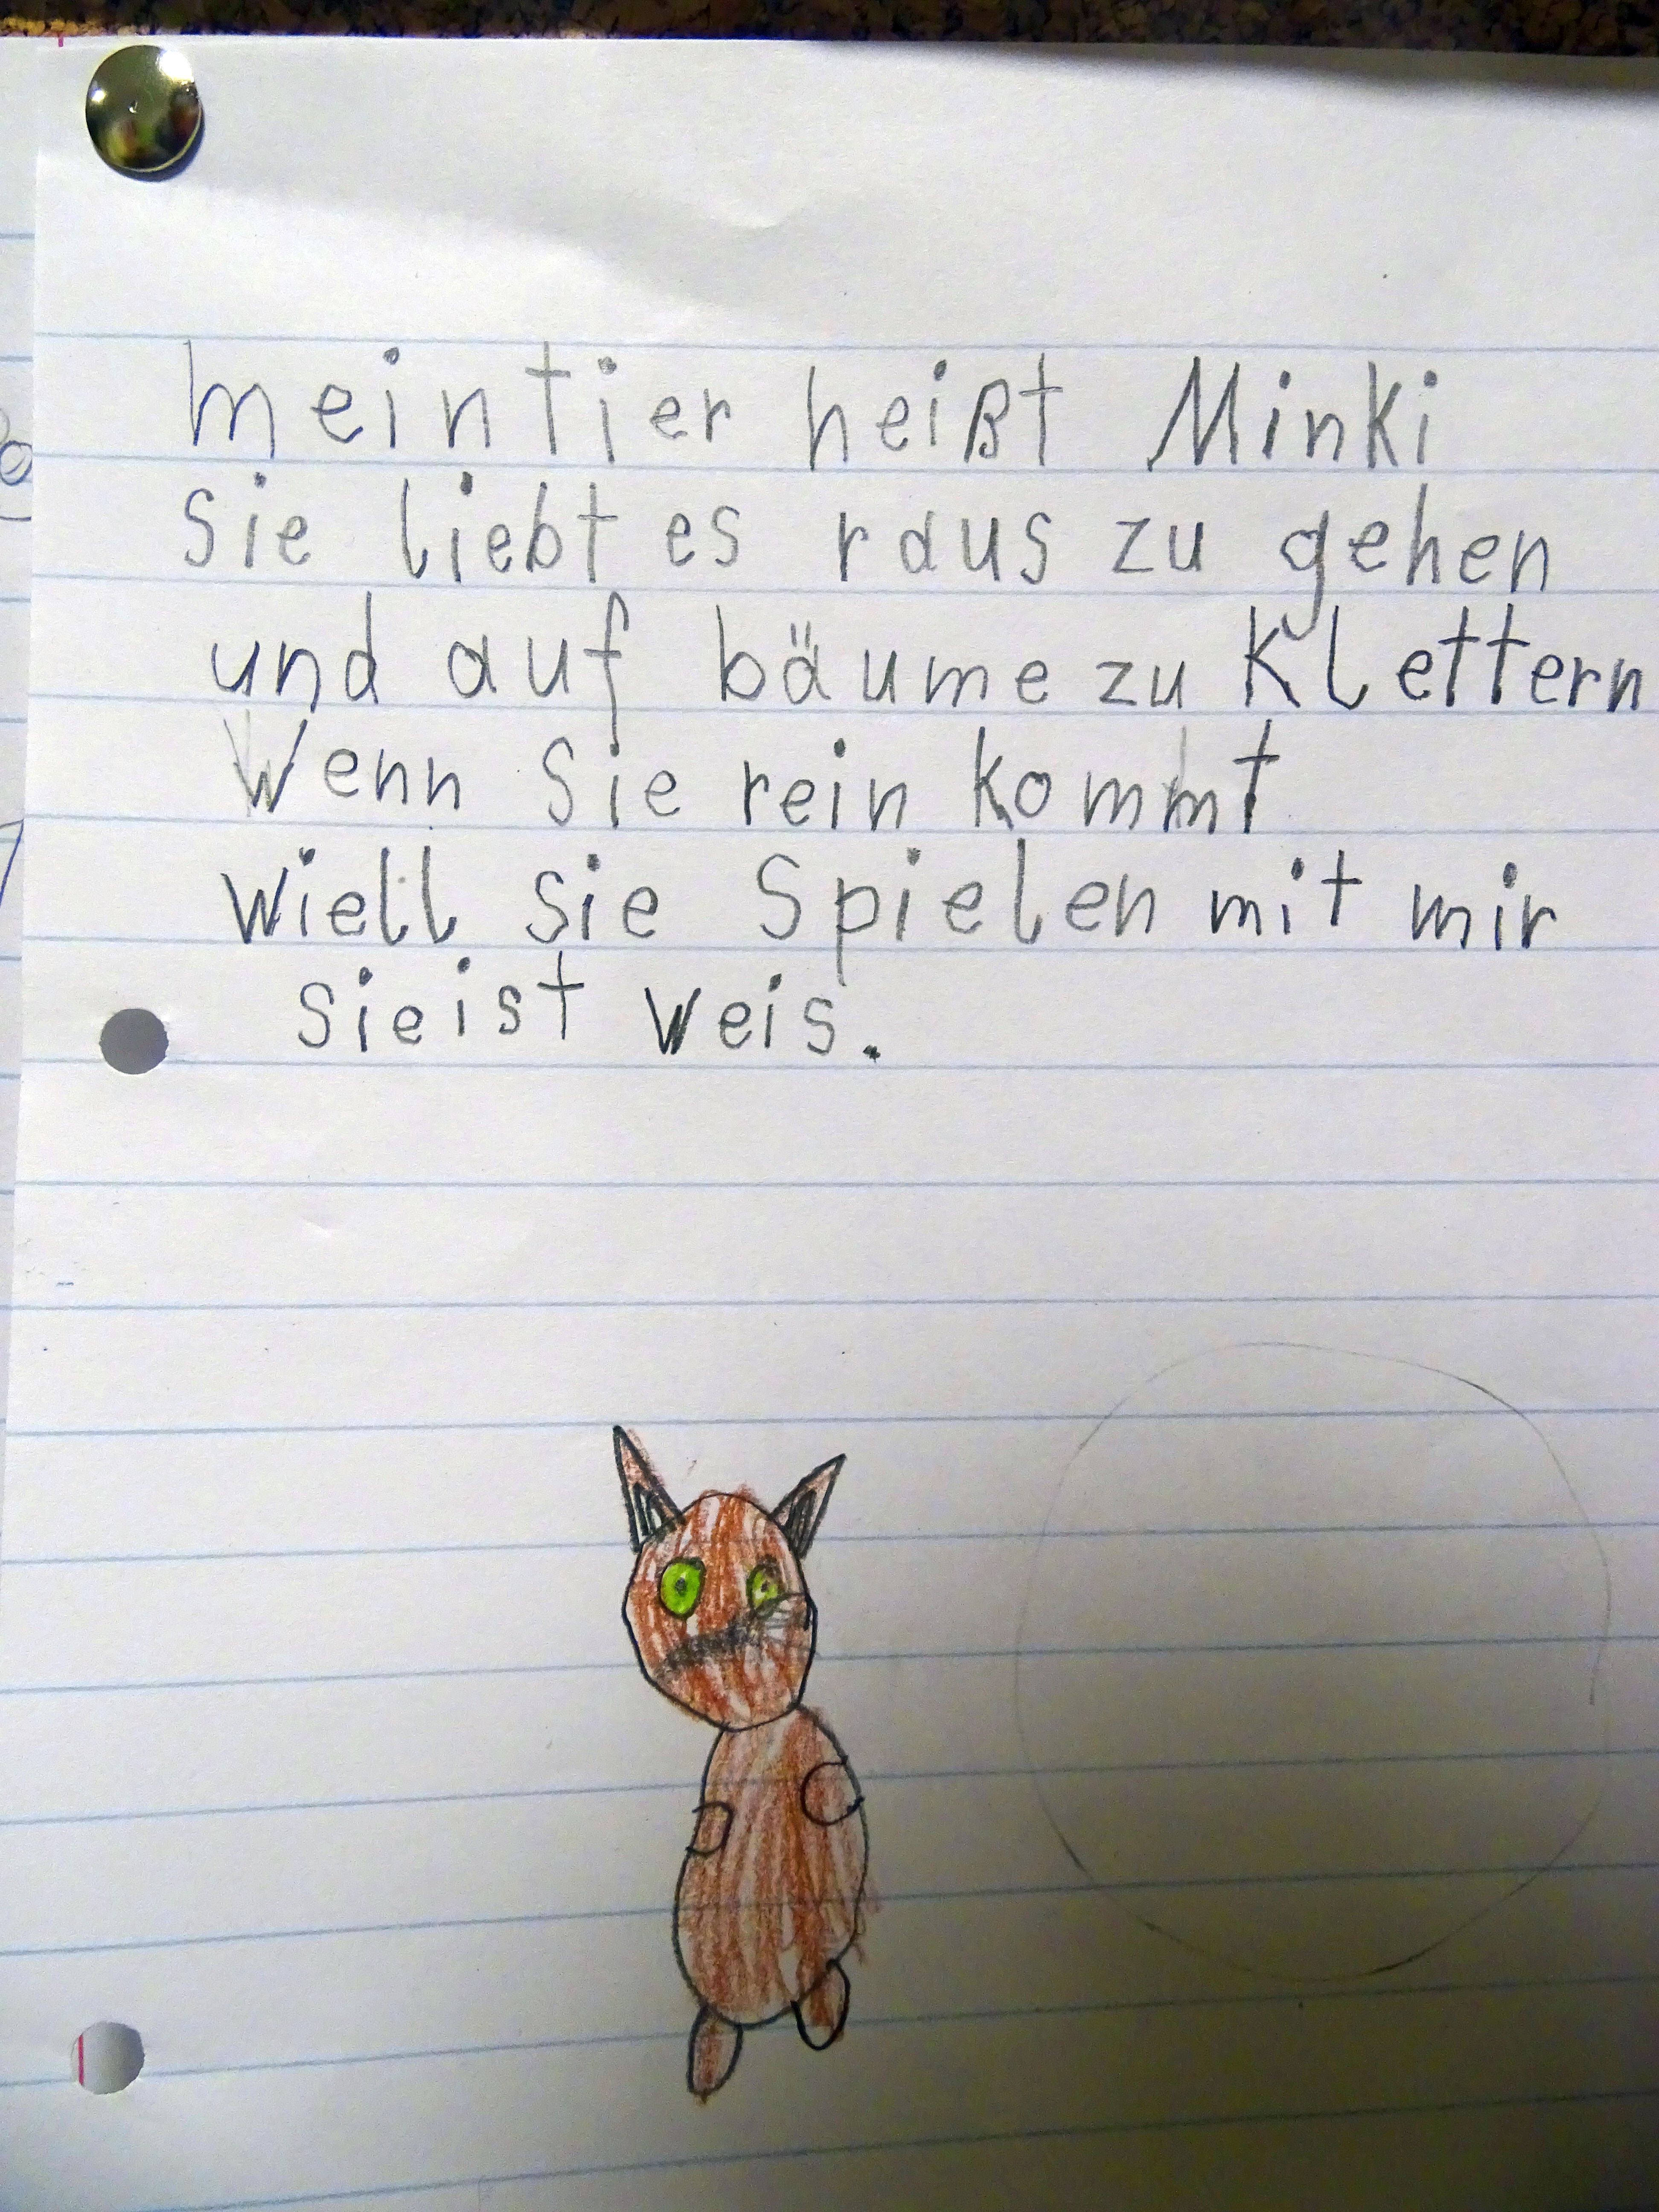 meintier heißt Minki
Sie liebt es raus zu gehen
und auf bäume zu Klettern
Wenn Sie rein kommt
Wiell Sie Spielen mit mir
Sieist weis.